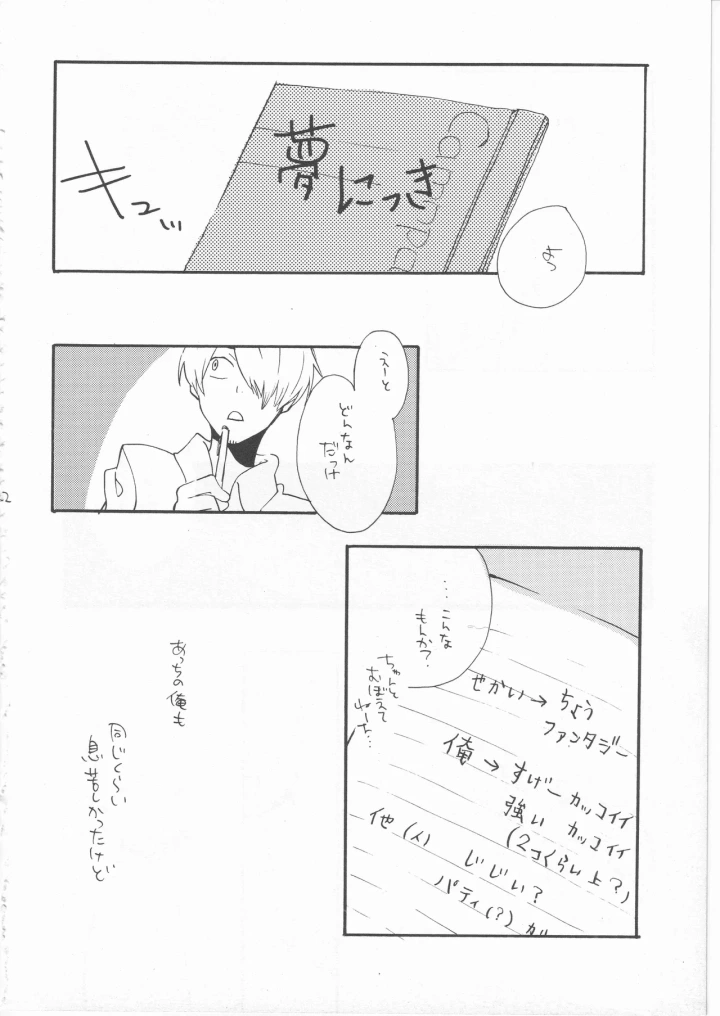 Campa
夢にっき
キュッ
よっ
えーと
どんなん
だっけ
…こんな
もんか?
ちゃんと
せかい→ちょう
ファンタジー
俺→すげーカッコイイ
強いカッコイイ
(2コくらい上?)
他(人) じじい?
パティ(?)が
あっちの俺も
同じくらい
息苦しかったけど
2